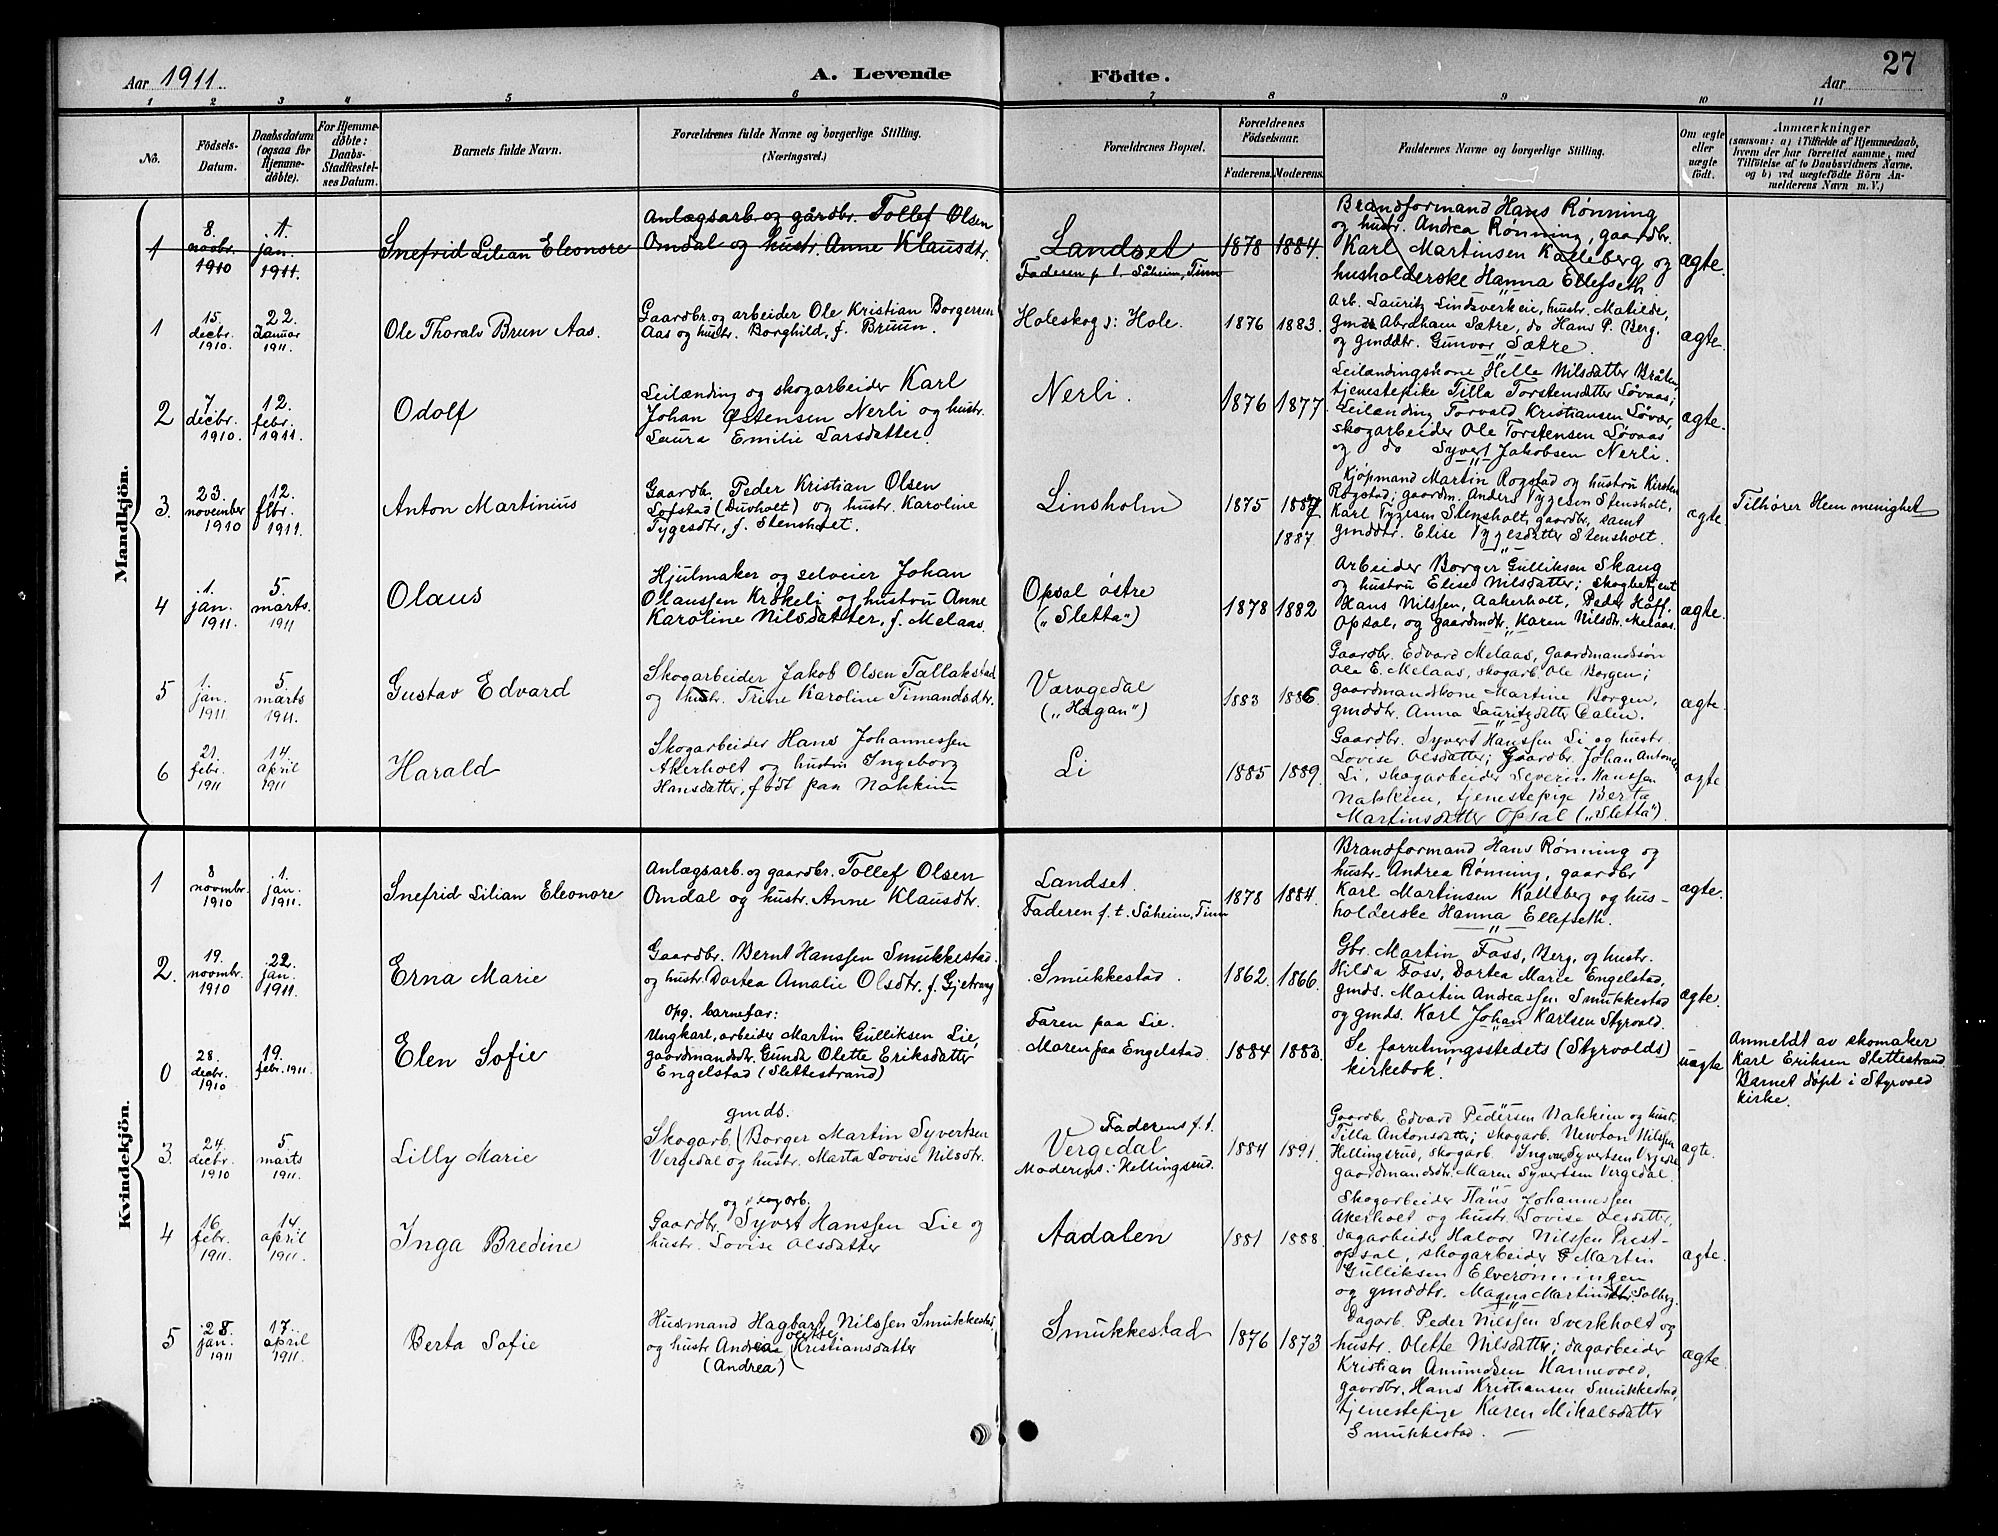 Aar 1911.
A. Levende
Födte.
Aar
27
1 2 3 4 5 6 7 8 9 10 11
No.
Födsels-
Datum.
Daabsdatum
(ogsaa for
Hjemme-
døbte).
For Hjemme-
døbte:
Daabs-
Stadfæstel-
ses Datum.
Barnets fulde Navn.
Forældrenes fulde Navne og borgerlige Stilling.
(Næringsvei.)
Forældrenes Bopæl.
Forældrenes
Födselsaar.
Faderens. Moderens.
Faddernes Navne og borgerlige Stilling.
Om ægte
eller
uægte
födt.
Anmærkninger
(saasom: a) i Tilfælde af Hjemmedaab,
hvem der har forrettet samme, med
Tilföielse af to Daabsvidners Navne,
og b) ved uægtefödte Börn An-
melderens Navn m. V.)
Mandkjön.
1
8.
novbr.
1910
1.
jan.
1911.
Snefrid Lilian Eleonore
Anlægsarb. og gårdbr. Tollef Olsen
Omdal og hustr. Anne Klausdtr.
Landset
Faderen f. t. Såheim, Tinn
1878 1884.
Brandformand Hans Rønning
og hustr. Andrea Rønning, gaardbr.
Karl Martinsen Kalleberg og
husholderske Hanna Ellefseth.
ægte.
1
15.
decbr.
1910.
22.
Januar
1911.
Ole Thoralv Brun Aas.
Gaardbr. og arbeider Ole Kristian Borgersen
Aas og hustr. Borghild, f. Bruun.
Holeskog i Hole.
1876 1883.
Arb. Lauritz Lindsverkeie, hustr. Matilde,
gmds Abraham Sætre, do Hans P. Berg.
og gmddtr. Gunvor Sætre.
ægte.
2
7
decbr.
1910.
12.
febr.
1911.
Odolf
Leilænding og skogarbeider Karl
Johan Østensen Nerli og hustr.
Laura Emilie Larsdatter.
Nerli.
1876 1877
Leilændingskone Helle Nilsdatter Bråten,
tjenestepike Tilla Torstensdatter Løvaas;
Leilænding Torvald Kristiansen Løvaas,
skogarbeider Ole Torstensen Løvaas
og do Syvert Jakobsen Nerli.
ægte.
3.
23.
november
1910
12.
febr.
1911.
Anton Martinius
Gaardbr. Peder Kristian Olsen
Lofstad (Duvholt) og hustr. Karoline
Tygesdtr., f. Stensholt.
Linsholm
1875 1887
1887.
Kjøpmand Martin Rogstad og hustru Kirsten
Rogstad; gaardm. Anders Tygesen Stensholt,
Karl Tygesen Stensholt, gaardbr, samt
gmddtr. Elise Tygesdatter Stensholt.
ægte
Tilhører Hem menighet
4
1.
jan.
1911.
5.
marts.
1911
Olaus
Hjulmaker og selveier Johan
Olaussen Krokeli og hustru Anne
Karoline Nilsdatter, f. Melaas.
Opsal østre
(„Sletta")
1878 1882
Arbeider Borger Gulliksen Skaug
og hustru Elise Nilsdatter; skogbetjent
Hans Nilssen, Aakerholt, Peder Hoff.
Opsal, og gaardmdtr. Karen Nilsdtr. Melaas.
ægte.
5
1.
jan.
1911.
5
marts
1911.
Gustav Edvard
Skogarbeider Jakob Olsen Tallakstad
og hustr. Trine Karoline Timandsdtr.
Værvgedal
(„Hagan")
1883 1886
Gaardbr. Edvard Melaas, Gaardmandssøn
Ole E. Melaas, skogarb. Ole Borgen;
gaardmandskone Martine Borgen,
gmddtr. Anna Lauritzdatter Dalen.
ægte.
6
21.
febr.
1911
14
april
1911
Harald
Skogarbeider Hans Johannessen
Akerholt og hustru Ingeborg
Hansdatter, født paa Nakkim
Li
1885 1889.
Gaardbr. Syvert Hanssen Li og hustr.
Lovise Olsdatter; Gaardbr. Johan Antonsen
Li, skogarbeider Severin Hanssen
Nakkim, tjenestepige Berta
Martinsdatter Opsal („Sletta").
ægte
Kvindekjön.
1
8
novmbr.
1910
1.
jan.
1911.
Snefrid Lilian Eleonore
Anlægsarb. og gaardbr. Tollef Olsen
Omdal og hustr. Anne Klausdtr.
Landset.
Faderen f. t. Såheim, Tinn
1878 1884.
Brandformand Hans Rønning og
hustr. Andrea Rønning, gaardbr
Karl Martinsen Kalleberg og hus-
holderske Hanna Ellefseth.
ægte.
2.
19.
novmbr.
1910
22.
jan.
1911.
Erna Marie
Gaardbr. Bernt Hanssen Smukkestad.
og hustr. Dortea Amalie Olsdtr. f. Gjetrang
Smukkestad.
1862 1866.
Gbr. Martin Foss, Berg, og hustr.
Hilda Foss, Dortea Marie Engelstad,
gmds. Martin Andreassen Smukkestad
og gmds. Karl Johan Karlsen Styrvold.
ægte.
0
28.
decbr.
1910
19.
febr. 1911.
Elen Sofie
Opg. barnefar:
Ungkarl, arbeider Martin Gulliksen Lie,
gaardmandsdtr. Gunda Olette Eriksdatter
Engelstad (Slettestrand)
Faren paa Lie.
Moren paa Engelstad.
1884 1883.
Se forretningsstedets (Styrvolds)
kirkebok.
uægte
Anmeldt av skomaker
Karl Eriksen Slettestrand
Barnet døpt i Styrvold
kirke.
3.
24.
decbr.
1910
5
marts
1911.
Lilly Marie
gmds.
Skogarb. (Borger Martin Syvertsen
Vergedal og hustr. Marta Lovise Nilsdtr.
Faderens f. t.
Vergedal
Moderens: Hellingsrud.
1884 1891.
Gaardbr. Edvard Pedersen Nakkim og hustr.
Tilla Antonsdatter; skogarb. Newton Nilssen
Hellingsrud, skogarb. Ingvald Syvertsen Vergedal
gaardmandsdtr. Maren Syvertsen Vergedal.
ægte.
4
16.
febr.
1911.
14.
april
1911.
Inga Bredine
og skogarb.
Gaardbr. Syvert Hanssen Lie og
hustr. Lovise Olsdatter
Aadalen
1881 1888.
Skogarbeider Hans Johannessen
Akerholt og hustr. Lovise Olsdatter,
dagarbeider Halvor Nilssen Prest-
opsal, skogarbeider Martin
Gulliksen Elverønningen
og gmddtr. Magna Martinsdtr. Solberg.
ægte.
5
28.
jan.
1911
17.
april
1911.
Berta Sofie
Husmand Hagbart Nilssen Smukkestad,
og hustr Andrea Olette Kristiansdatter
(Andrea)
Smukkestad
1876 1873
Dagarb. Peder Nilssen Sverkholt og
hustr. Olette Nilsdatter; dagarbeider
Kristian Amundsen Hannevold,
gaardbr. Hans Kristiansen Smukkestad,
tjenestepige Karen Mikalsdatter
Smukkestad.
ægte.